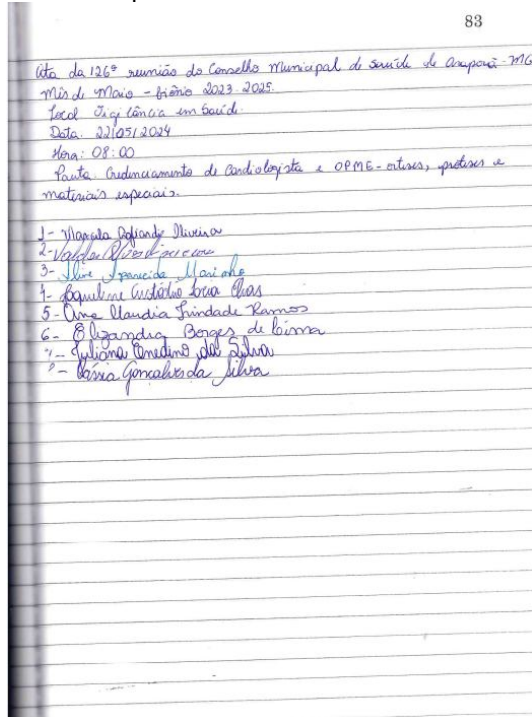 83
Ata da 126ª reunião do Conselho Municipal de Saúde de Araporã-MG
Mês de Maio - biênio 2023. 2025.
Local Vigilância em Saúde.
Data: 22/05/2024
Hora: 08:00
Pauta: Credenciamento de Cardiologista e OPME - orteses, próteses e
materiais especiais.
1- Marcela Oliveira
2- Valder
3- Aline Aparecida Mariano
4- Jaqueline Custódio
5- Ana Claudia Trindade Ramos
6- Elizandra Borges de Lima
7- Juliana da Silva
8- Cássia Gonçalves da Silva